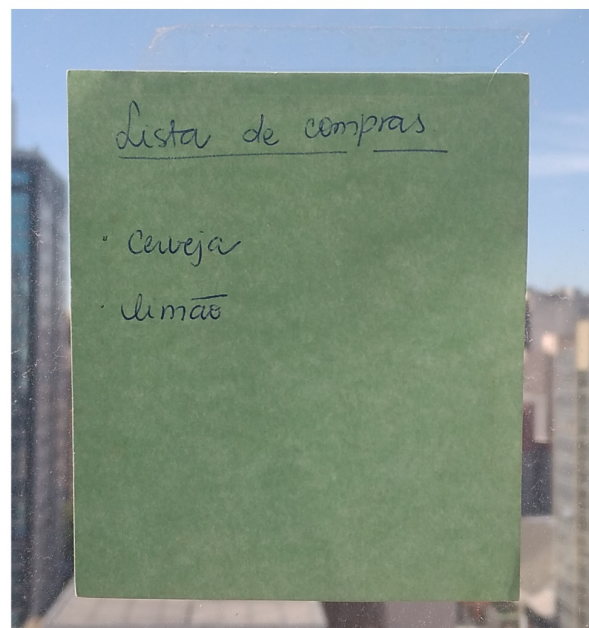 Lista de compras
· cerveja
· limão